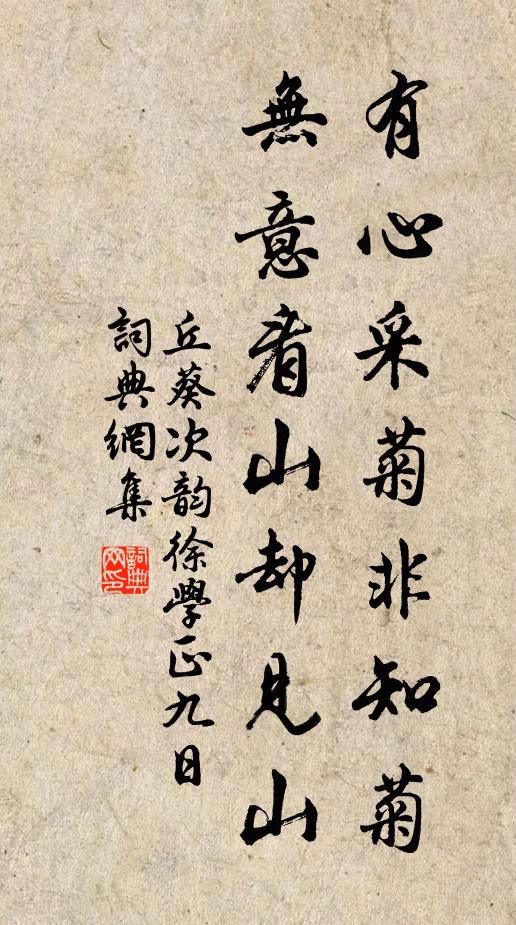 有心采菊非知菊
無意看山却見山
丘葵次韵徐學正九日
詞典網集
詞典网印